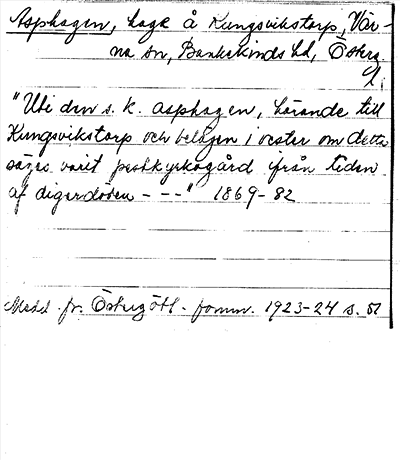 Asphagen, hage å Kungsvikstorp, Vår-
na sn, Bankekinds hd, Österg.
l.
"Uti den s. k. asphagen, hörande till
Kungsvikstorp och belägen i vester om detta
säges varit pestkyrkogård ifrån tiden
af digerdöden - - -" 1869-82
Medd. fr. Östergötl. fornm. 1923-24 s. 51